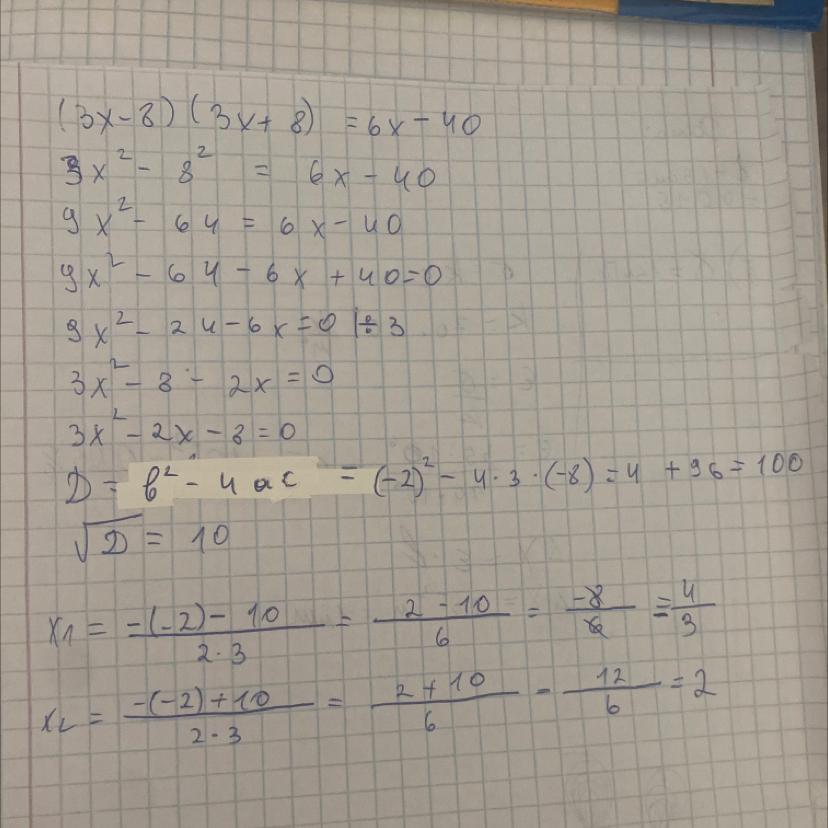 (3x-8)(3x+8) = 6x-40
3x² - 8² = 6x-40
9x² - 64 = 6x-40
9x² - 64 - 6x + 40=0
9x² - 24-6x=0 |÷3
3x² - 8 - 2x=0
3x² - 2x - 8=0
D = b² - 4ac = (-2)² - 4·3·(-8)=4 + 96=100
√D = 10
x1 = -(-2)-10/2·3 = 2-10/6 = -8/6 = 4/3
x2 = -(-2)+10/2·3 = 2+10/6 - 12/6 = 2